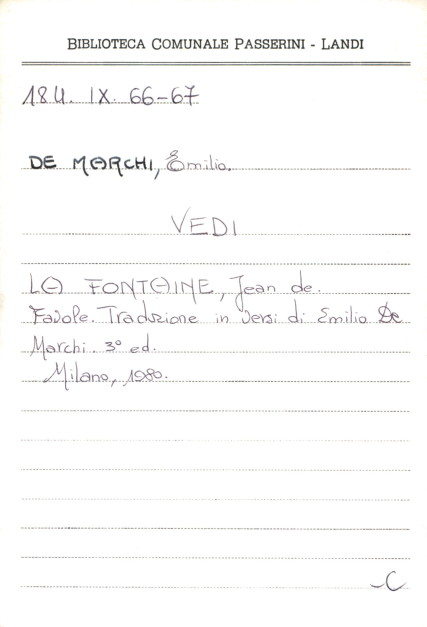 BIBLIOTECA COMUNALE PASSERINI - LANDI
184. IX. 66-67
DE MARCHI, Emilio.
VEDI
LA FONTAINE, Jean de.
Favole. Traduzione in versi di Emilio De
Marchi. 3º ed.
Milano, 1980.
C